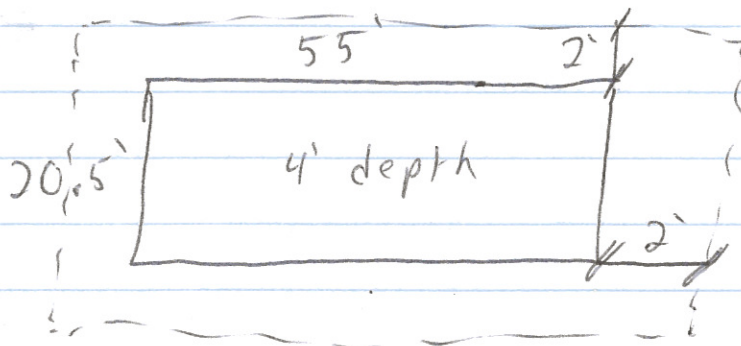 55' 2'
20'.5'
4' depth
2'